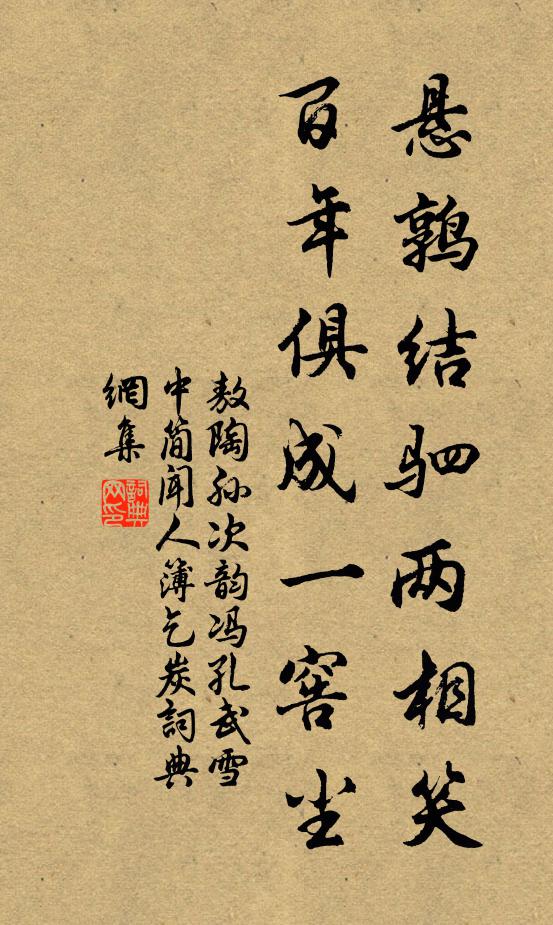 悬鹑结驷两相笑
百年俱成一窖尘
敖陶孙次韵冯孔武雪
中简闻人簿乞炭詞典
網集
詞典
网印